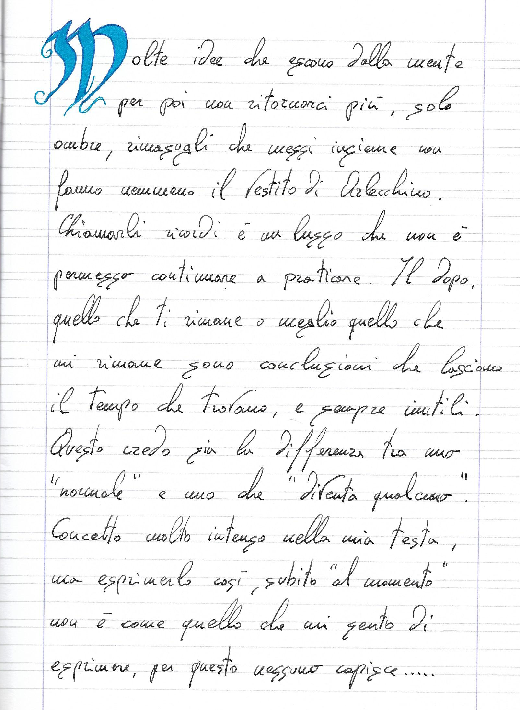 Molte idee che escono dalla mente
per poi non ritornarci più, solo
ombre, rimasugli che messi insieme non
fanno nemmeno il vestito di Arlecchino.
Chiamarli ricordi è un lusso che non è
permesso continuare a praticare. Il dopo,
quello che ti rimane o meglio quello che
mi rimane sono conclusioni che lasciano
il tempo che trovano, e sempre inutili.
Questo credo sia la differenza tra uno
"normale" e uno che "diventa qualcuno".
Concetto molto intenso nella mia testa,
ma esprimerlo così, subito "al momento"
non è come quello che mi sento di
esprimere, per questo nessuno capisce.....